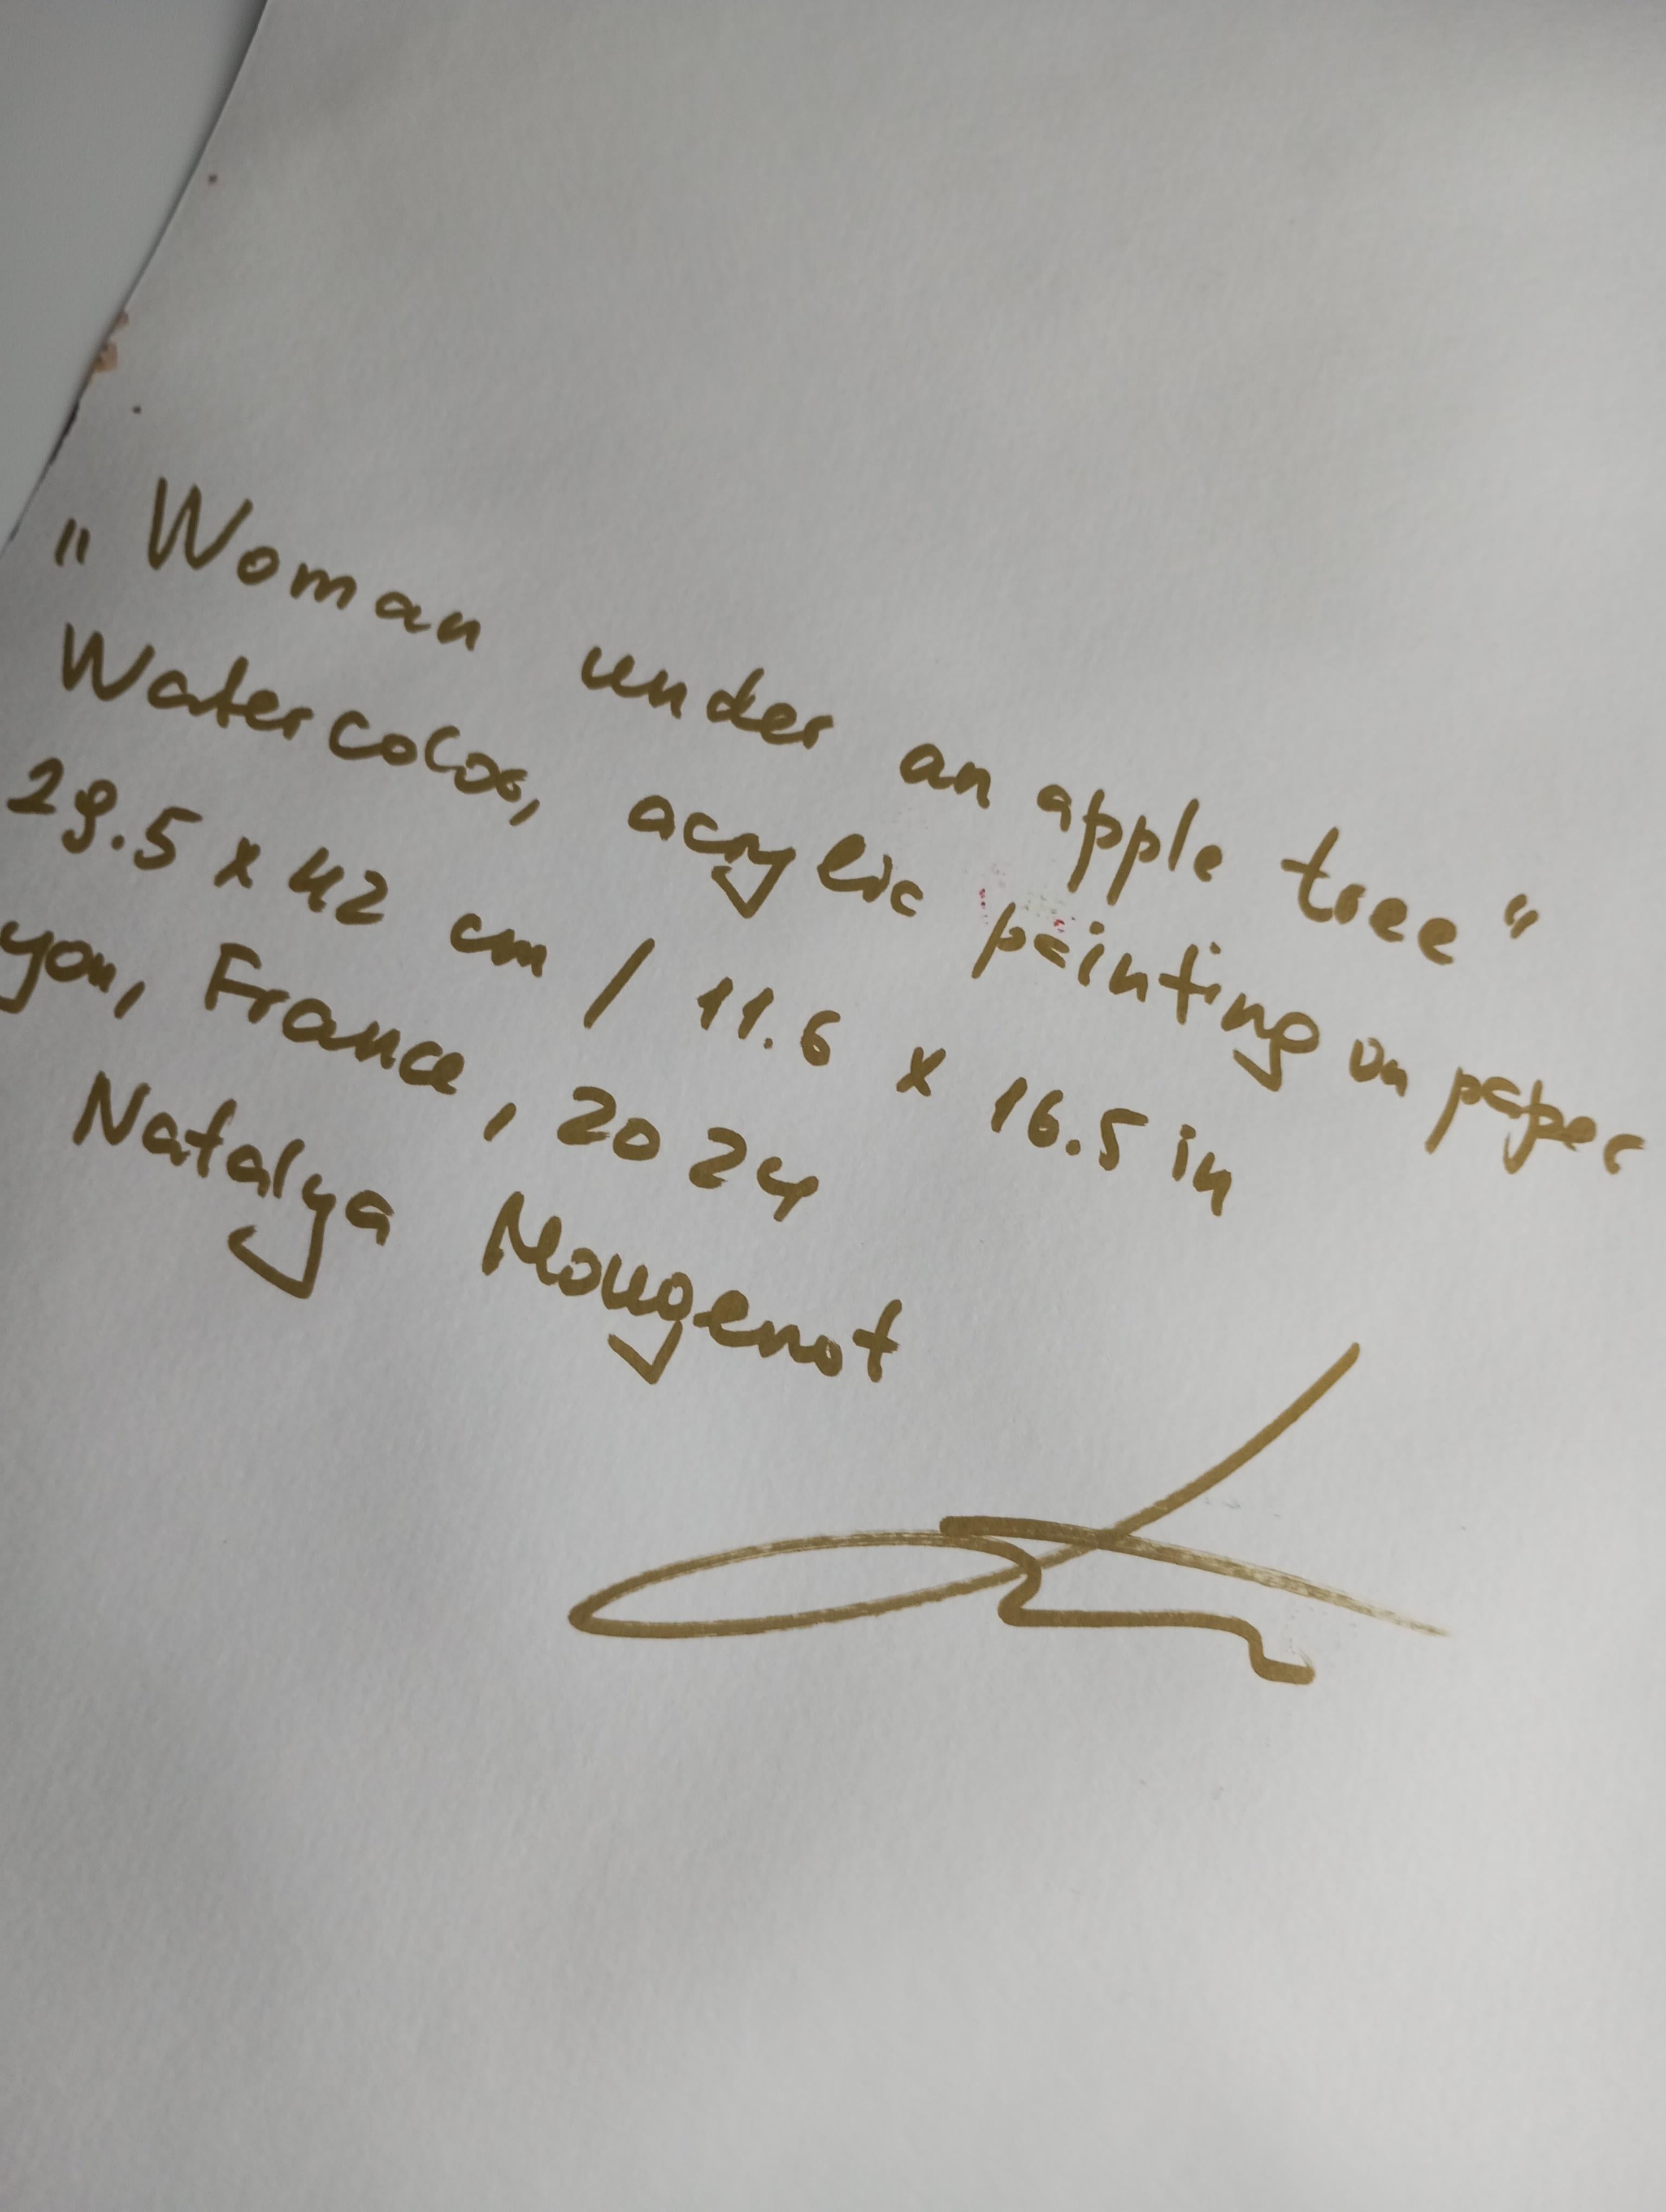 "Woman under an apple tree"
Watercolor, acrylic painting on paper
29.5 x 42 cm / 11.6 x 16.5 in
yon, France, 2024
Natalya Mougenot